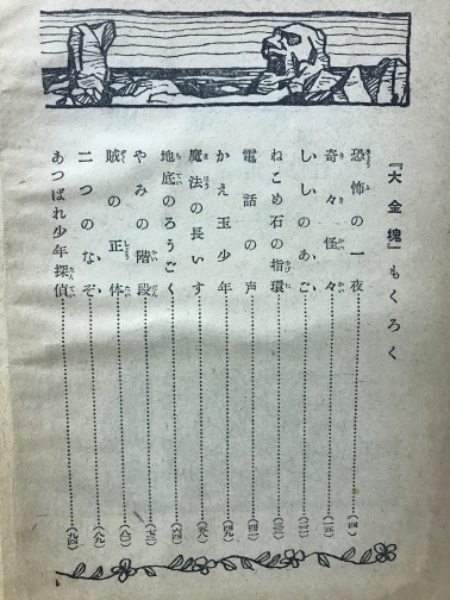 『大金塊』もくろく
恐怖の一夜……（四）
奇々怪々……（一五）
ししのあご……
ねこめ石の指環……
電話の声……
かえ玉少年……（四九）
魔法の長いす……（五八）
地底のろうごく……（六四）
やみの階段……
賊の正体……
二つのなぞ……（八九）
あつばれ少年探偵……（九四）